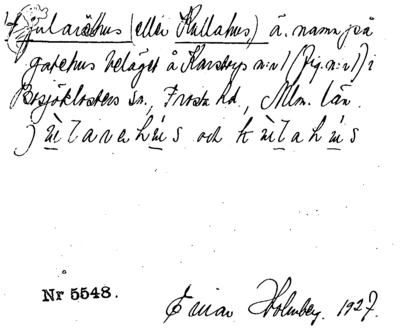 Jularöhus (eller Kullahus,) ä. namn på
gatehus beläget å Karstorps n:r 1 (fig. n:r 1) i
Bosjöklosters sn., Frosta hd., Mlm. län.
och
Nr 5548.
Einar Holmberg. 1927.